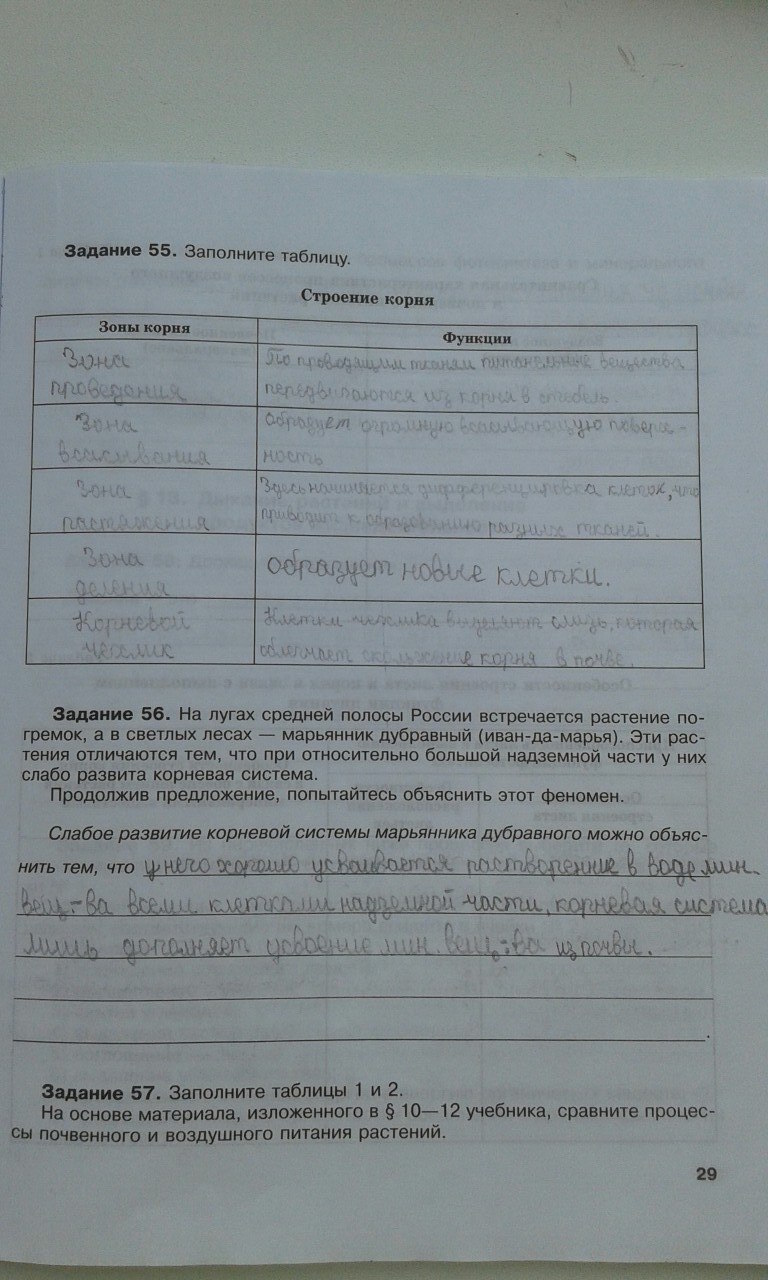 Задание 55. Заполните таблицу.
Строение корня
Зоны корня
Функции
Зона
проведения
По проводящим тканям питательные вещества
передвигаются из корня в стебель.
Зона
всасывания
Образует огромную всасывающую поверх-
ность
Зона
растяжения
Здесь начинается дифференцировка клеток, что
приводит к образованию разных тканей.
Зона
деления
Образует новые клетки.
Корневой
чехлик
Клетки чехлика выделяют слизь, которая
облегчает скольжение корня в почве.
Задание 56. На лугах средней полосы России встречается растение по-
гремок, а в светлых лесах — марьянник дубравный (иван-да-марья). Эти рас-
тения отличаются тем, что при относительно большой надземной части у них
слабо развита корневая система.
Продолжив предложение, попытайтесь объяснить этот феномен.
Слабое развитие корневой системы марьянника дубравного можно объяс-
нить тем, что у него хорошо усваивается растворение в воде мин.
вещ-ва всеми клетками надземной части, корневая система
лишь дополняет усвоение мин. вещ-ва из почвы.
Задание 57. Заполните таблицы 1 и 2.
На основе материала, изложенного в § 10—12 учебника, сравните процес-
сы почвенного и воздушного питания растений.
29